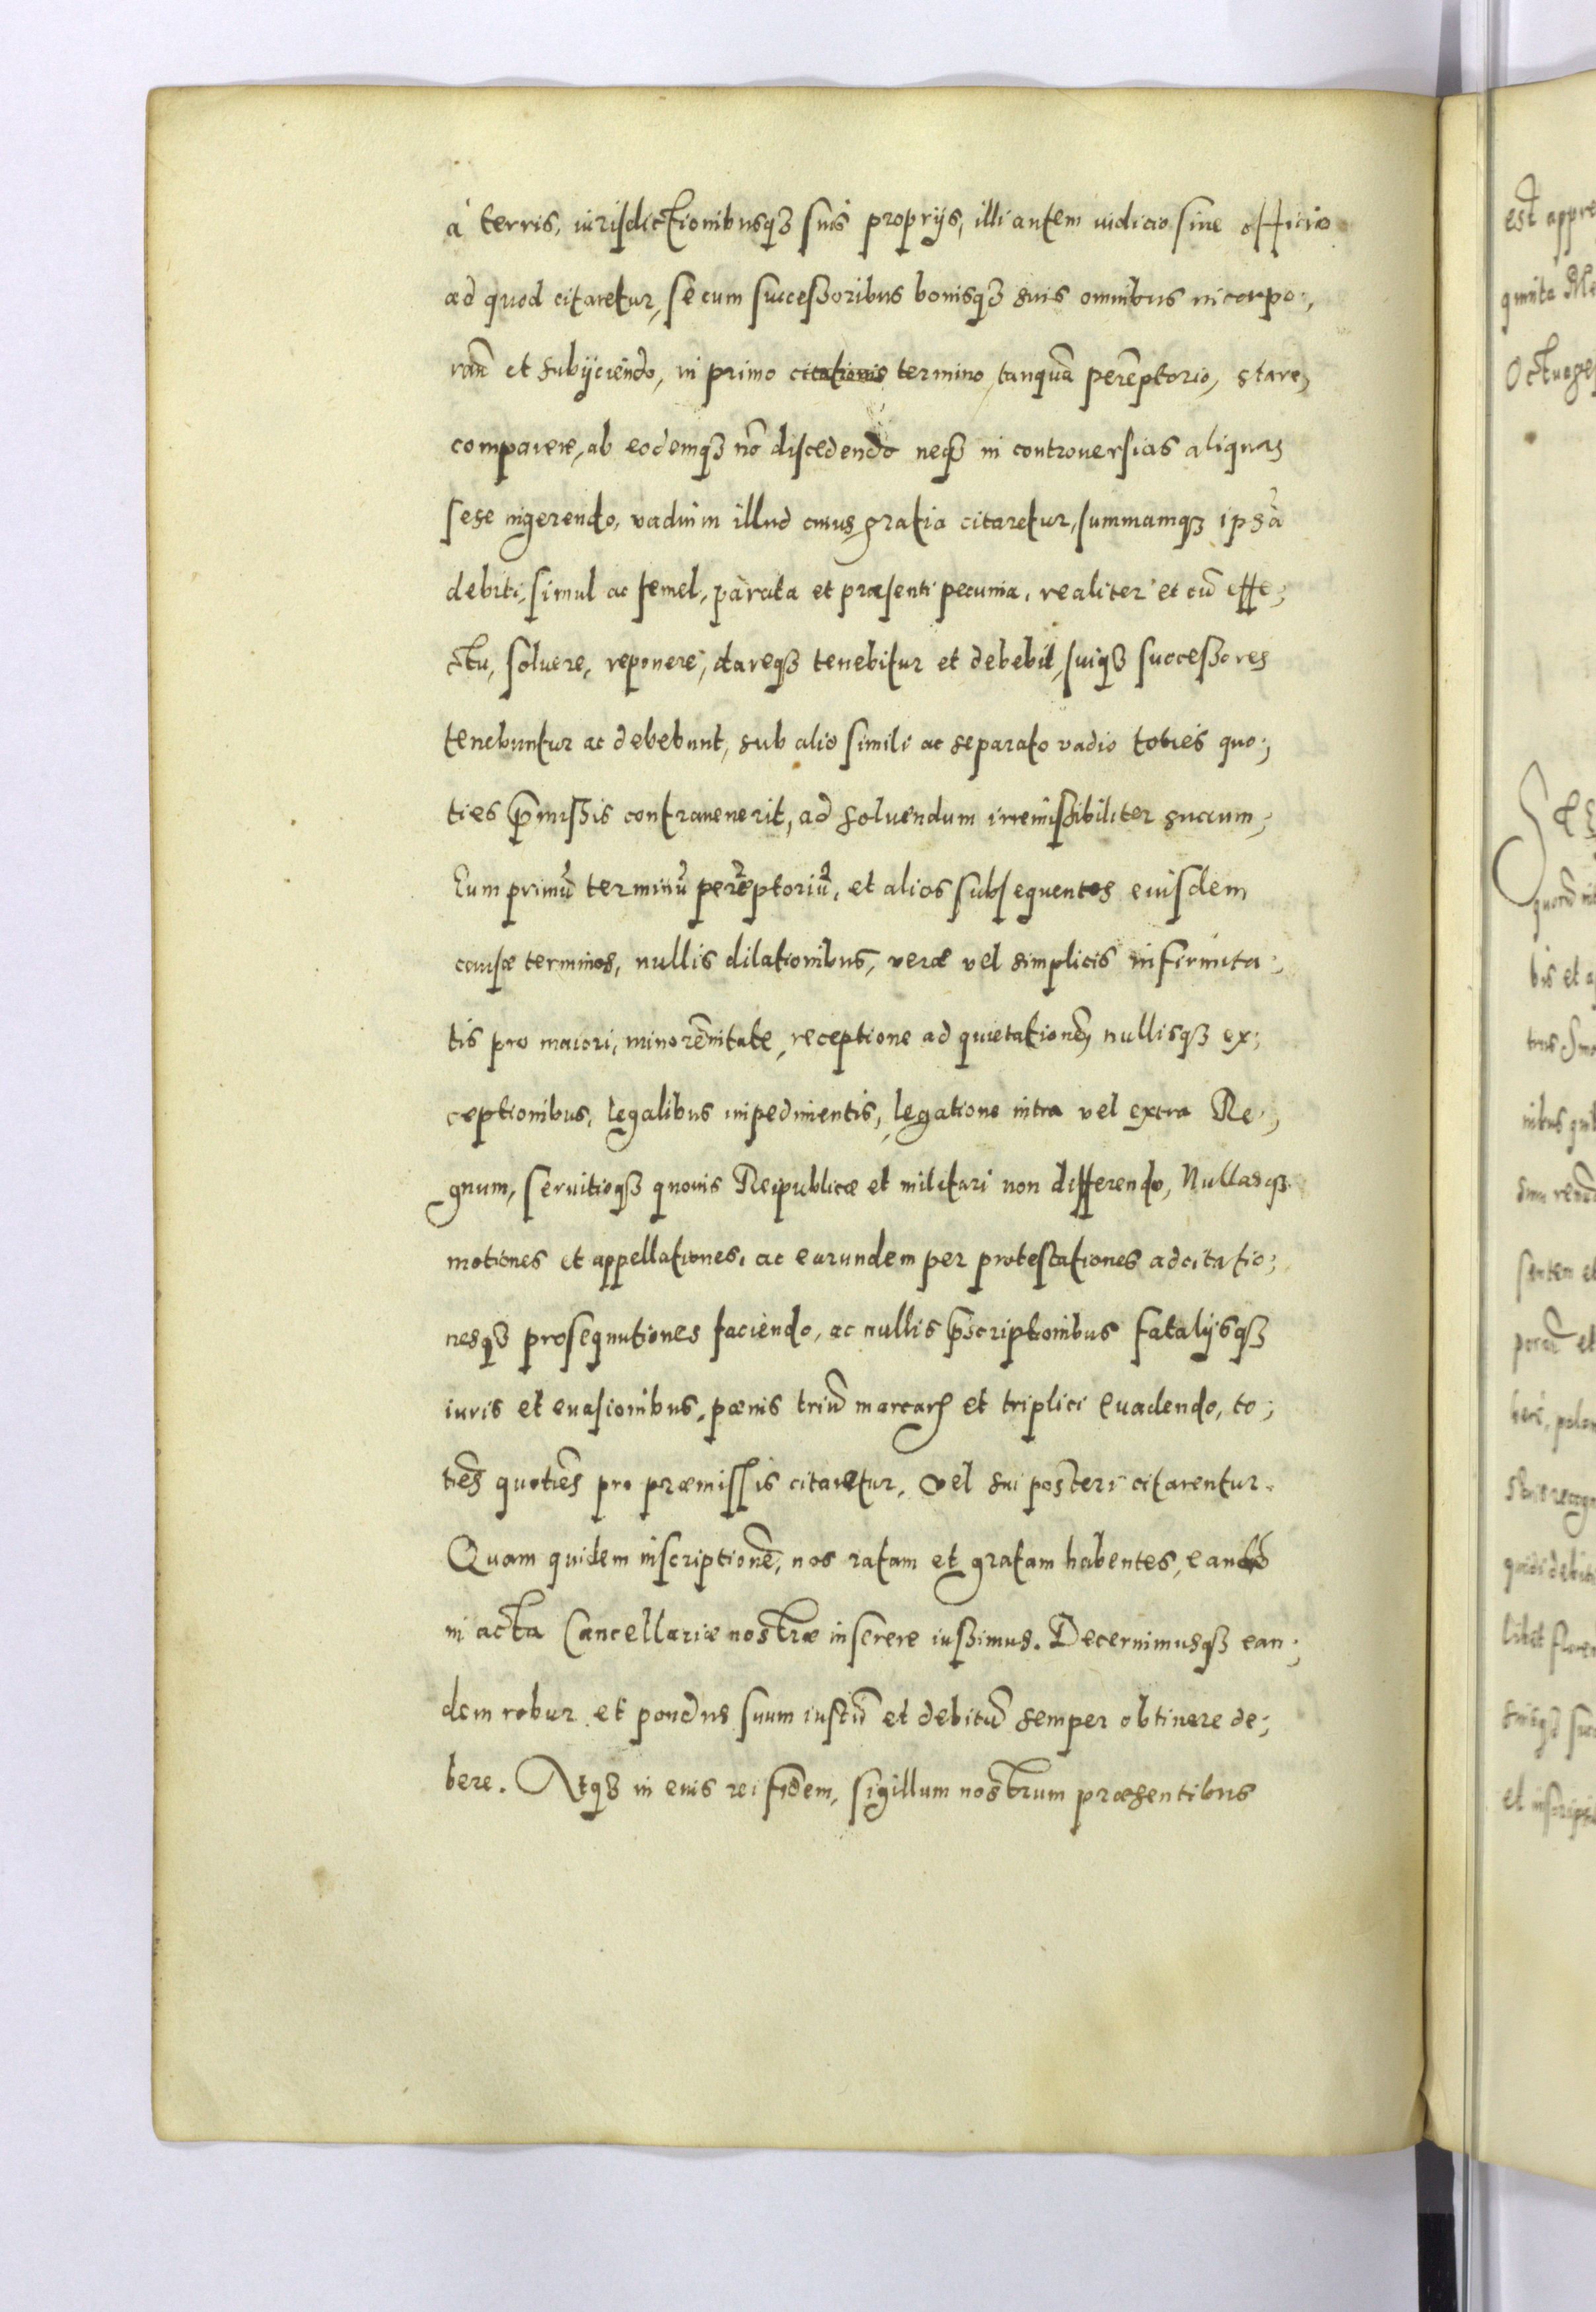 à terris, iurisdictionibusqȝ suis proprijs, illi autem iudicio siue officio
ad quod citaretur, se cum successoribus bonisqȝ suis omnibus incorpo;
rañ et subijciendo, in primo citationis termino, tanquā perēptorio, stare,
comparere, ab eodemqȝ nō discedendo neqȝ in controuersias aliquas
sese ingerendo, vadium illud cuius gratia citaretur, summamqȝ ipsā
debiti, simul ac semel, parata et præsenti pecunia, realiter et cū effe;
ctu, soluere, reponere, dareqȝ tenebitur et debebit, suiqȝ successores
tenebuntur ac debebunt, sub alio simili ac separato vadio toties quo;
ties p̄missis contrauenerit, ad soluendum irremissibiliter succum;
Eum primū terminū perēptoriū, et alios subsequentes eiusdem
causæ terminos, nullis dilationibus, veræ vel simplicis infirmita;
tis pro maiori, minorēnitate, receptione ad quietationē, nullisqȝ ex;
ceptionibus, legalibus impedimentis, legatione intra vel extra Re;
gnum, seruitioqȝ quouis Reipublicæ et militari non differendo, Nullasqȝ
motiones et appellationes, ac earundem per protestationes adcitatio;
nesqȝ prosequutiones faciendo, ac nullis p̄scriptionibus fatalijsqȝ
iuris et euasionibus, pœnis triū marcarꝝ et triplici euadendo, to;
tiēs quotiēs pro præmissis citaretur, vel sui posteri citarentur.
Quam quidem inscriptionē, nos ratam et gratam habentes,
in acta Cancellariæ nostræ inserere iussimus. Decernimusqȝ ean;
dem robur et pondus suum iustū et debitū semper obtinere de;
bere. Atqȝ in eius rei fidem, sigillum nostrum præsentibus
est appre
quinta Me
Octuages
bis et a
nibus quib
et inscripti